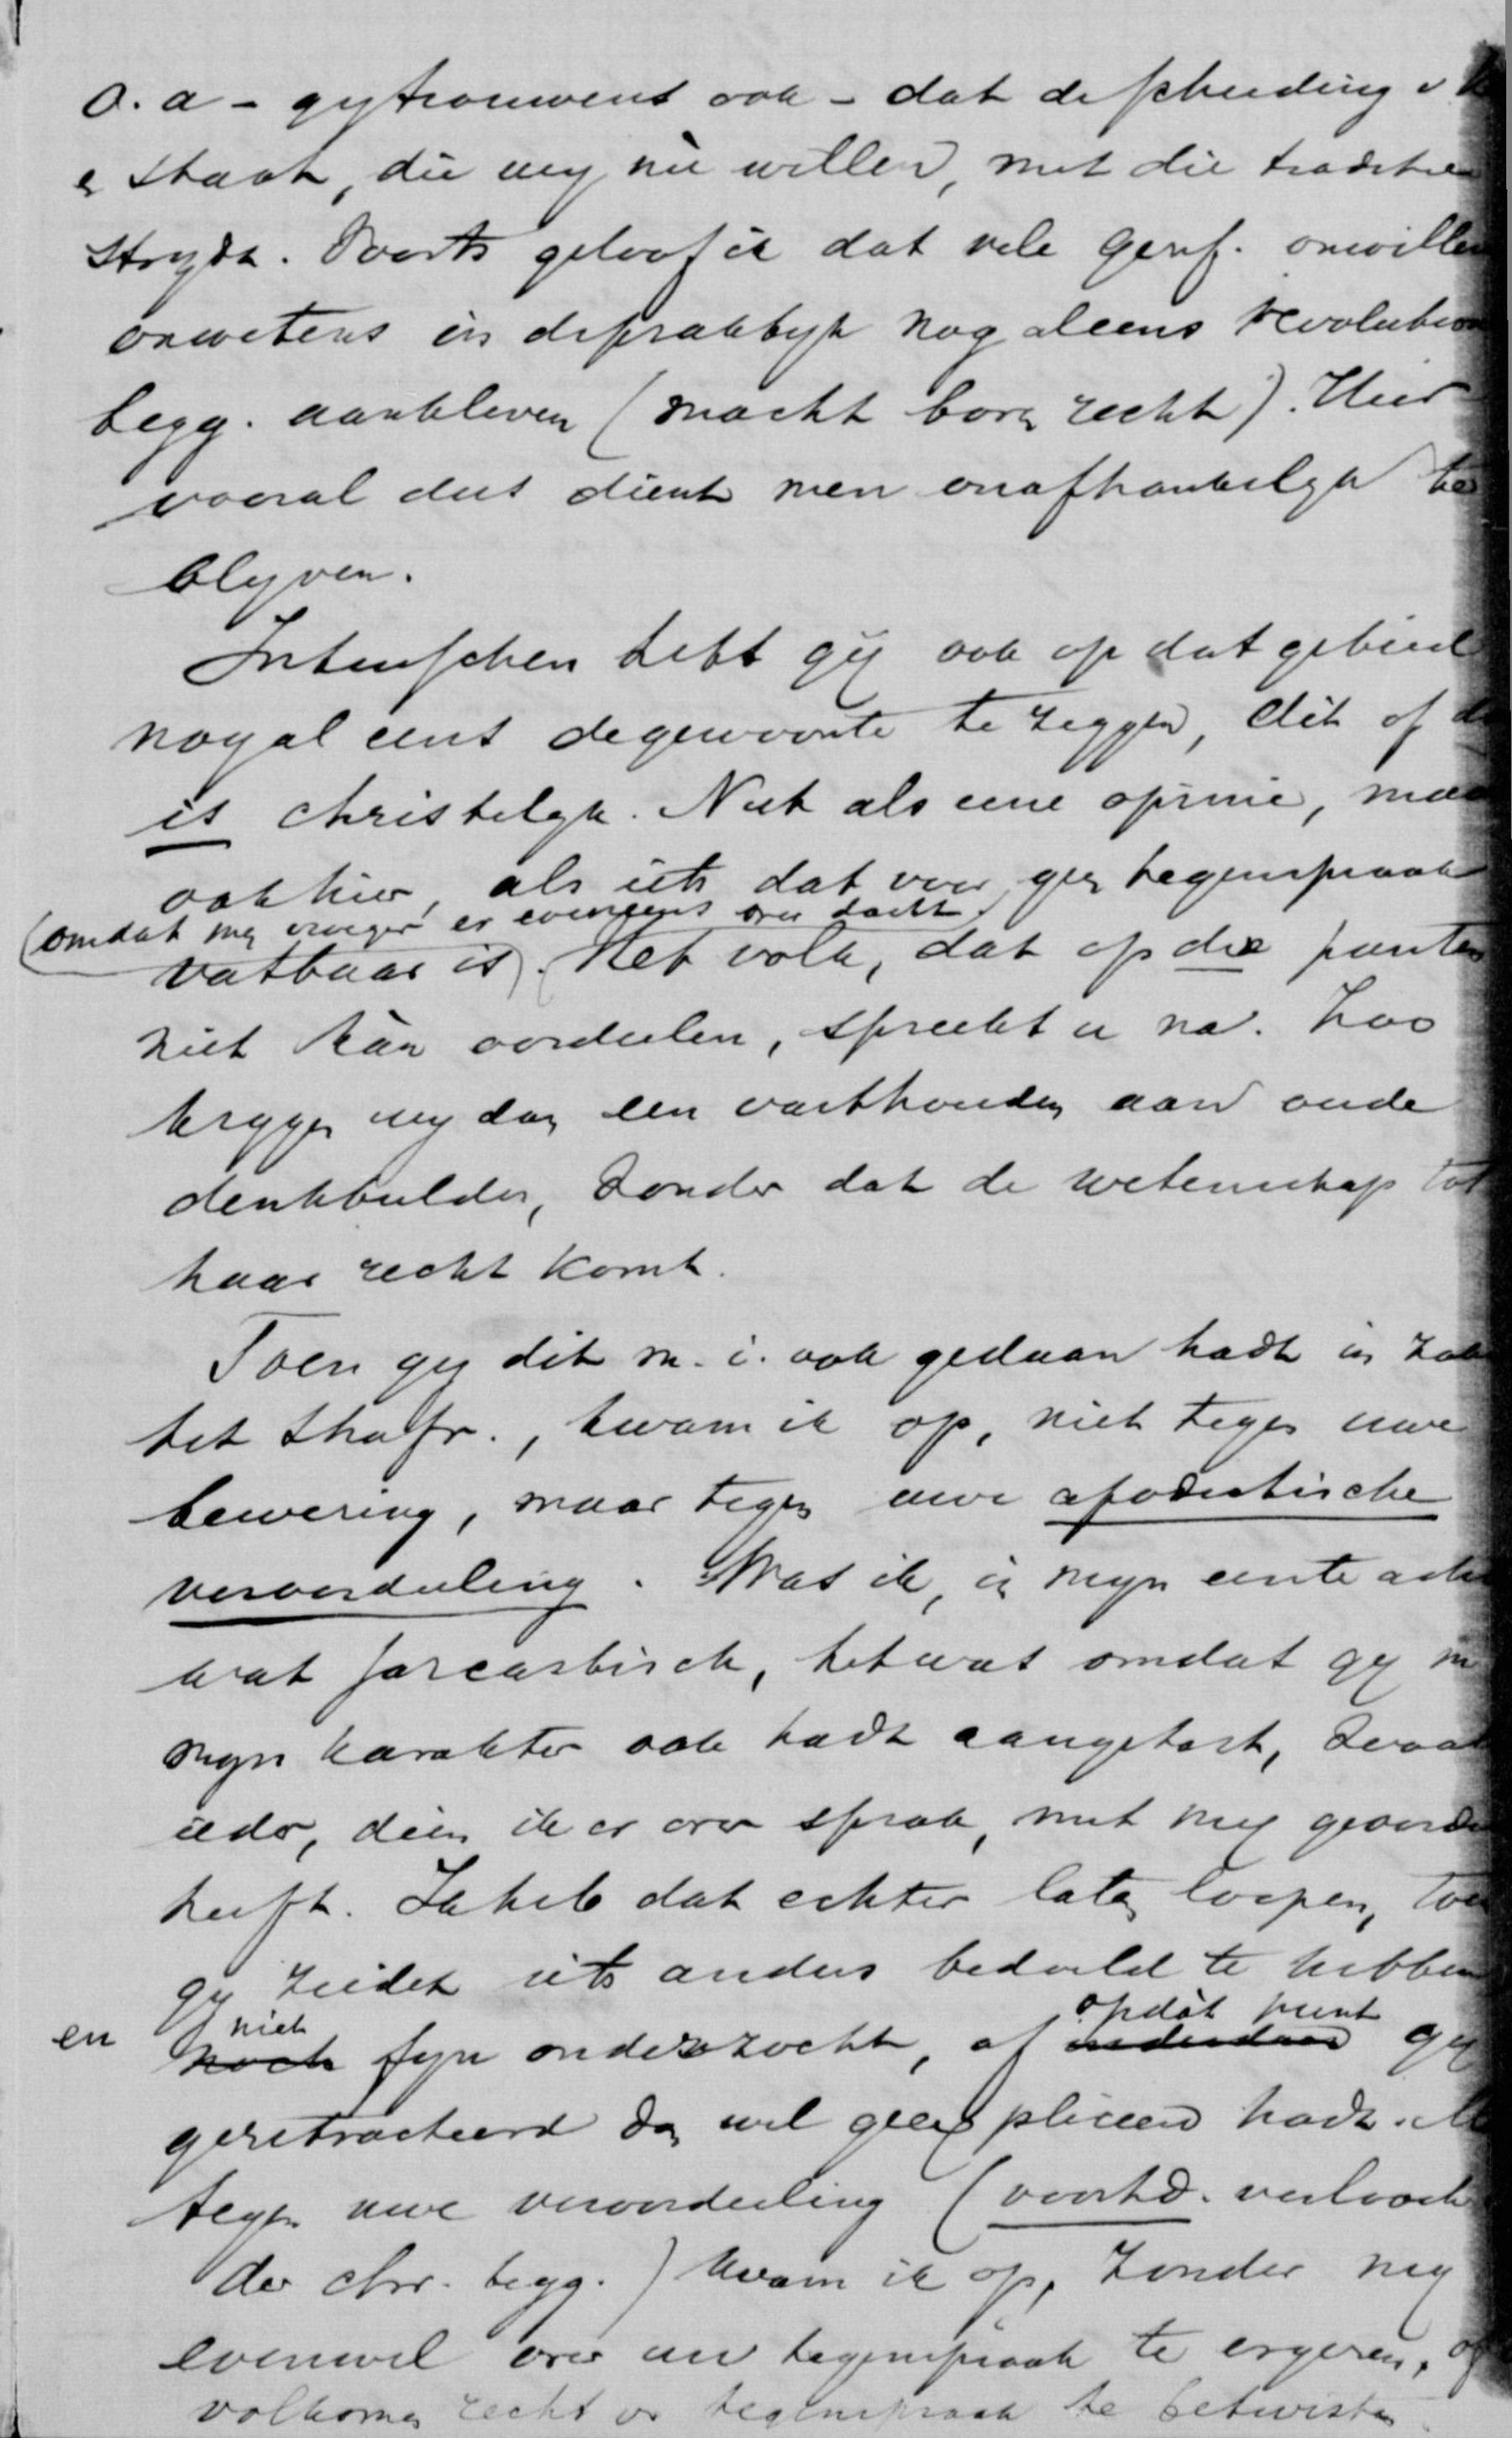 o.a – gy trouwens ook – dat de scheiding v
& Staat, die wy nu willen, met die traditie
strydt. Voorts geloof ik dat vele geref. onwillen
onwetens in de praktyk nog aleens revolution
begg. aankleven (macht bove recht). Hier
vooral dus dient men onafhankelyk te
blyven.
Intusschen hebt gij ook op dat gebied
nogal eens de gewoonte te zeggen, dit of
is christelyk. Niet als eene opinie, maa
ook hier, als iets dat voor gee tegenspraak
(omdat mij vroeger er eveneens over dacht
vatbaar is). Het volk, dat op die punten
niet kan oordeelen, spreekt u na. Zoo
krygen wy dan een vasthouden aan oude
denkbeelden, zonder dat de wetenschap tot
haar recht komt.
Toen gy dit m. i. ook gedaan hadt in zake
het strafr., kwam ik op, niet tegen uwe
bewering, maar tegen uwe apodictische
veroordeeling. Was ik, in myn eerste
wat sarcastisch, het was omdat gy
myn karakter ook hadt aangetast,
ieder, dien ik er over sprak, met my
heeft. Ik heb dat echter laten loopen, toen
gy zeidet iets anders bedoeld te hebben
en noch niet fyn onderzocht, of op dát punt gy
geretracteerd dan wel geexpliceerd hadt.
tegen uwe veroordeeling (voortd. verlooch
der chr. begg.) kwam ik op, zonder my
evenwel over uw tegenspraak te ergeren, of
volkomen recht v. tegenspraak te betwisten